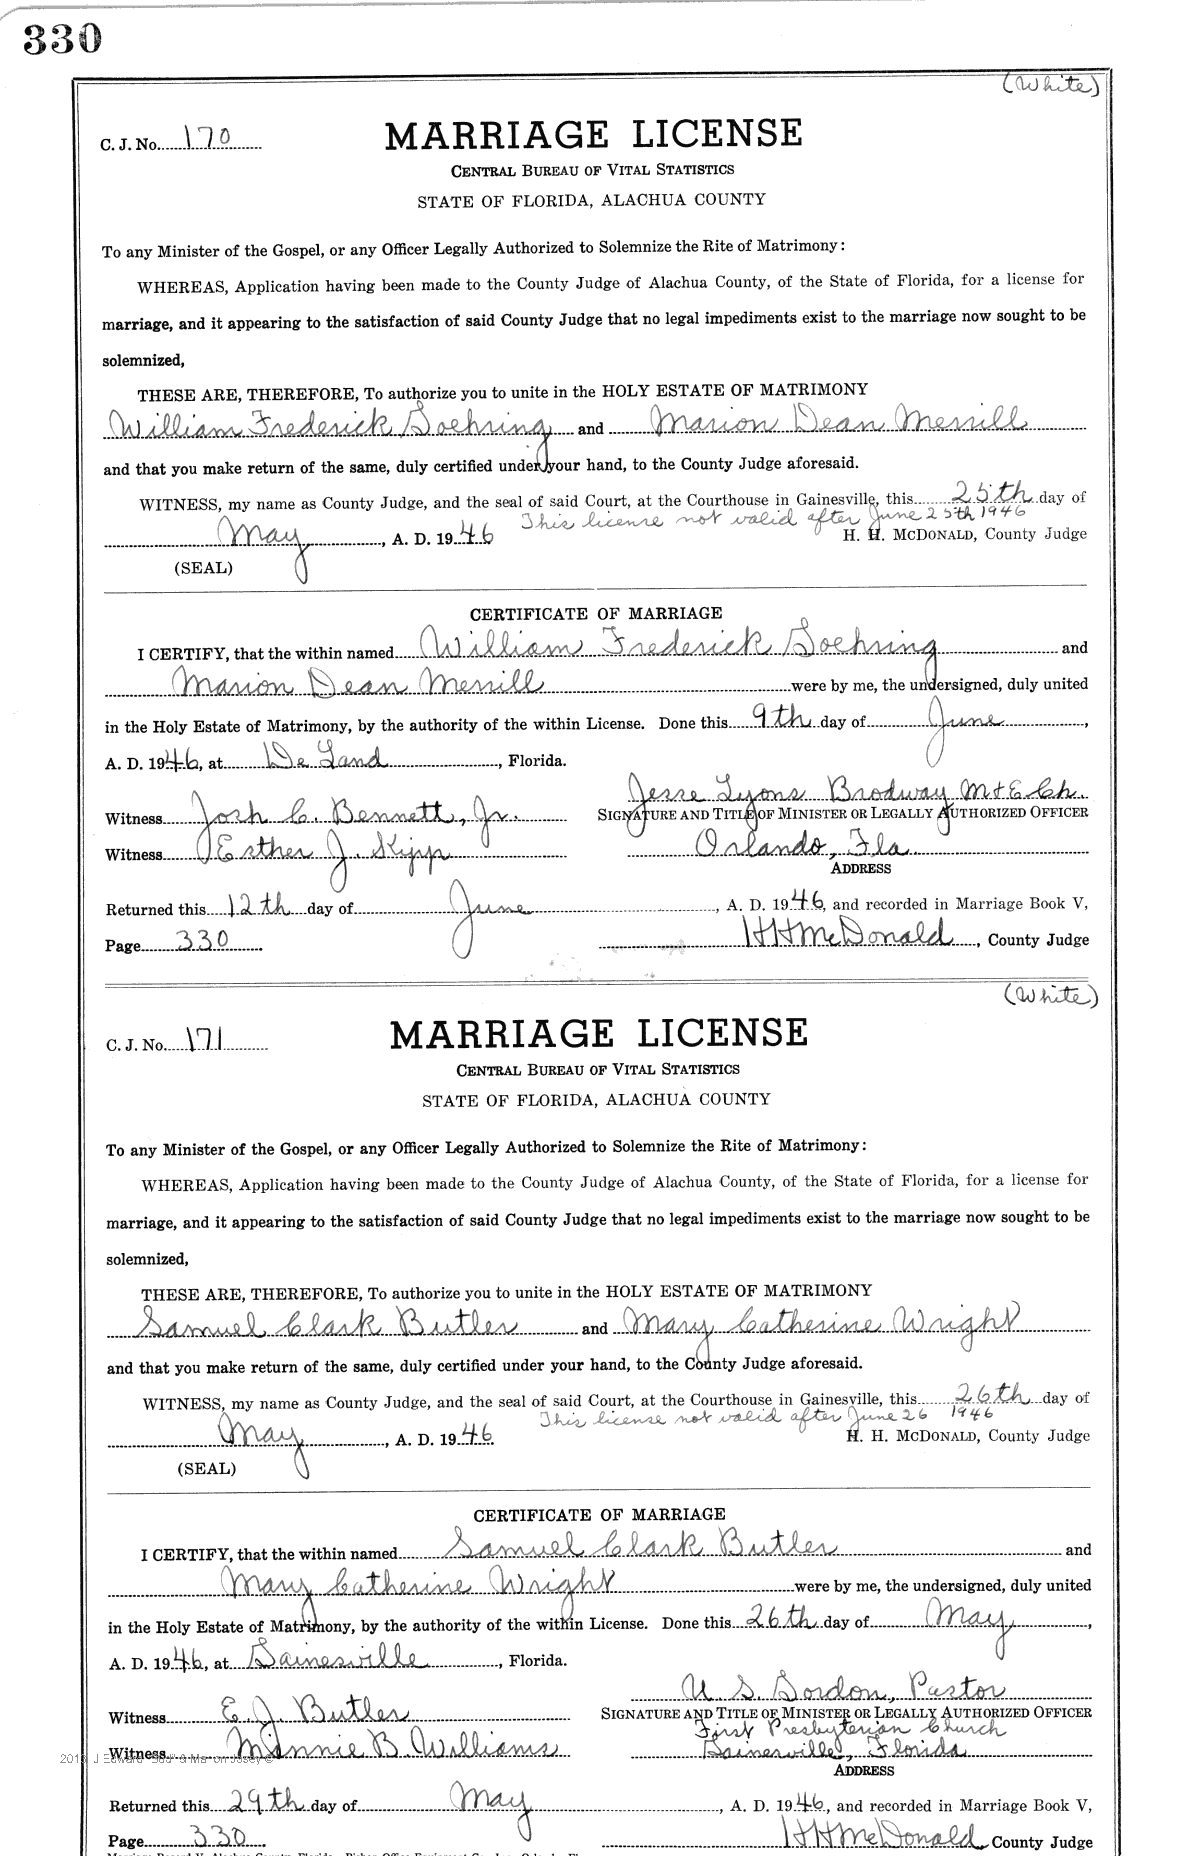 330
(White)
C. J. No. 170
MARRIAGE LICENSE
CENTRAL BUREAU OF VITAL STATISTICS
STATE OF FLORIDA, ALACHUA COUNTY
To any Minister of the Gospel, or any Officer Legally Authorized to Solemnize the Rite of Matrimony:
WHEREAS, Application having been made to the County Judge of Alachua County, of the State of Florida, for a license for
marriage, and it appearing to the satisfaction of said County Judge that no legal impediments exist to the marriage now sought to be
solemnized,
THESE ARE, THEREFORE, To authorize you to unite in the HOLY ESTATE OF MATRIMONY
William Frederick Goehring and Marion Dean Merrill
and that you make return of the same, duly certified under your hand, to the County Judge aforesaid.
WITNESS, my name as County Judge, and the seal of said Court, at the Courthouse in Gainesville, this 25th day of
This license not valid after June 25th 1946
May, A. D. 1946 H. H. MCDONALD, County Judge
(SEAL)
CERTIFICATE OF MARRIAGE
I CERTIFY, that the within named William Frederick Goehring and
Marion Dean Merrill were by me, the undersigned, duly united
in the Holy Estate of Matrimony, by the authority of the within License. Done this 9th day of June,
A. D. 1946, at De Land, Florida.
Jesse Lyons Brodway M+E Ch.
Witness Josh C. Bennett, Jr. SIGNATURE AND TITLE OF MINISTER OR LEGALLY AUTHORIZED OFFICER
Witness Esther J. Kipp Orlando, Fla
ADDRESS
Returned this 12th day of June, A. D. 1946, and recorded in Marriage Book V,
Page 330 HHMcDonald, County Judge
(White)
C. J. No. 171
MARRIAGE LICENSE
CENTRAL BUREAU OF VITAL STATISTICS
STATE OF FLORIDA, ALACHUA COUNTY
To any Minister of the Gospel, or any Officer Legally Authorized to Solemnize the Rite of Matrimony:
WHEREAS, Application having been made to the County Judge of Alachua County, of the State of Florida, for a license for
marriage, and it appearing to the satisfaction of said County Judge that no legal impediments exist to the marriage now sought to be
solemnized,
THESE ARE, THEREFORE, To authorize you to unite in the HOLY ESTATE OF MATRIMONY
Samuel Clark Butler and Mary Catherine Wright
and that you make return of the same, duly certified under your hand, to the County Judge aforesaid.
WITNESS, my name as County Judge, and the seal of said Court, at the Courthouse in Gainesville, this 26th day of
This license not valid after June 26 1946
May, A. D. 1946. H. H. MCDONALD, County Judge
(SEAL)
CERTIFICATE OF MARRIAGE
I CERTIFY, that the within named Samuel Clark Butler and
Mary Catherine Wright were by me, the undersigned, duly united
in the Holy Estate of Matrimony, by the authority of the within License. Done this 26th day of May,
A. D. 1946, at Gainesville, Florida.
U S. Gordon, Pastor
Witness E. J. Butler SIGNATURE AND TITLE OF MINISTER OR LEGALLY AUTHORIZED OFFICER
First Presbyterian Church
Witness Minnie B. Williams Gainesville, Florida
ADDRESS
Returned this 29th day of May, A. D. 1946, and recorded in Marriage Book V,
Page 330 HHMcDonald County Judge